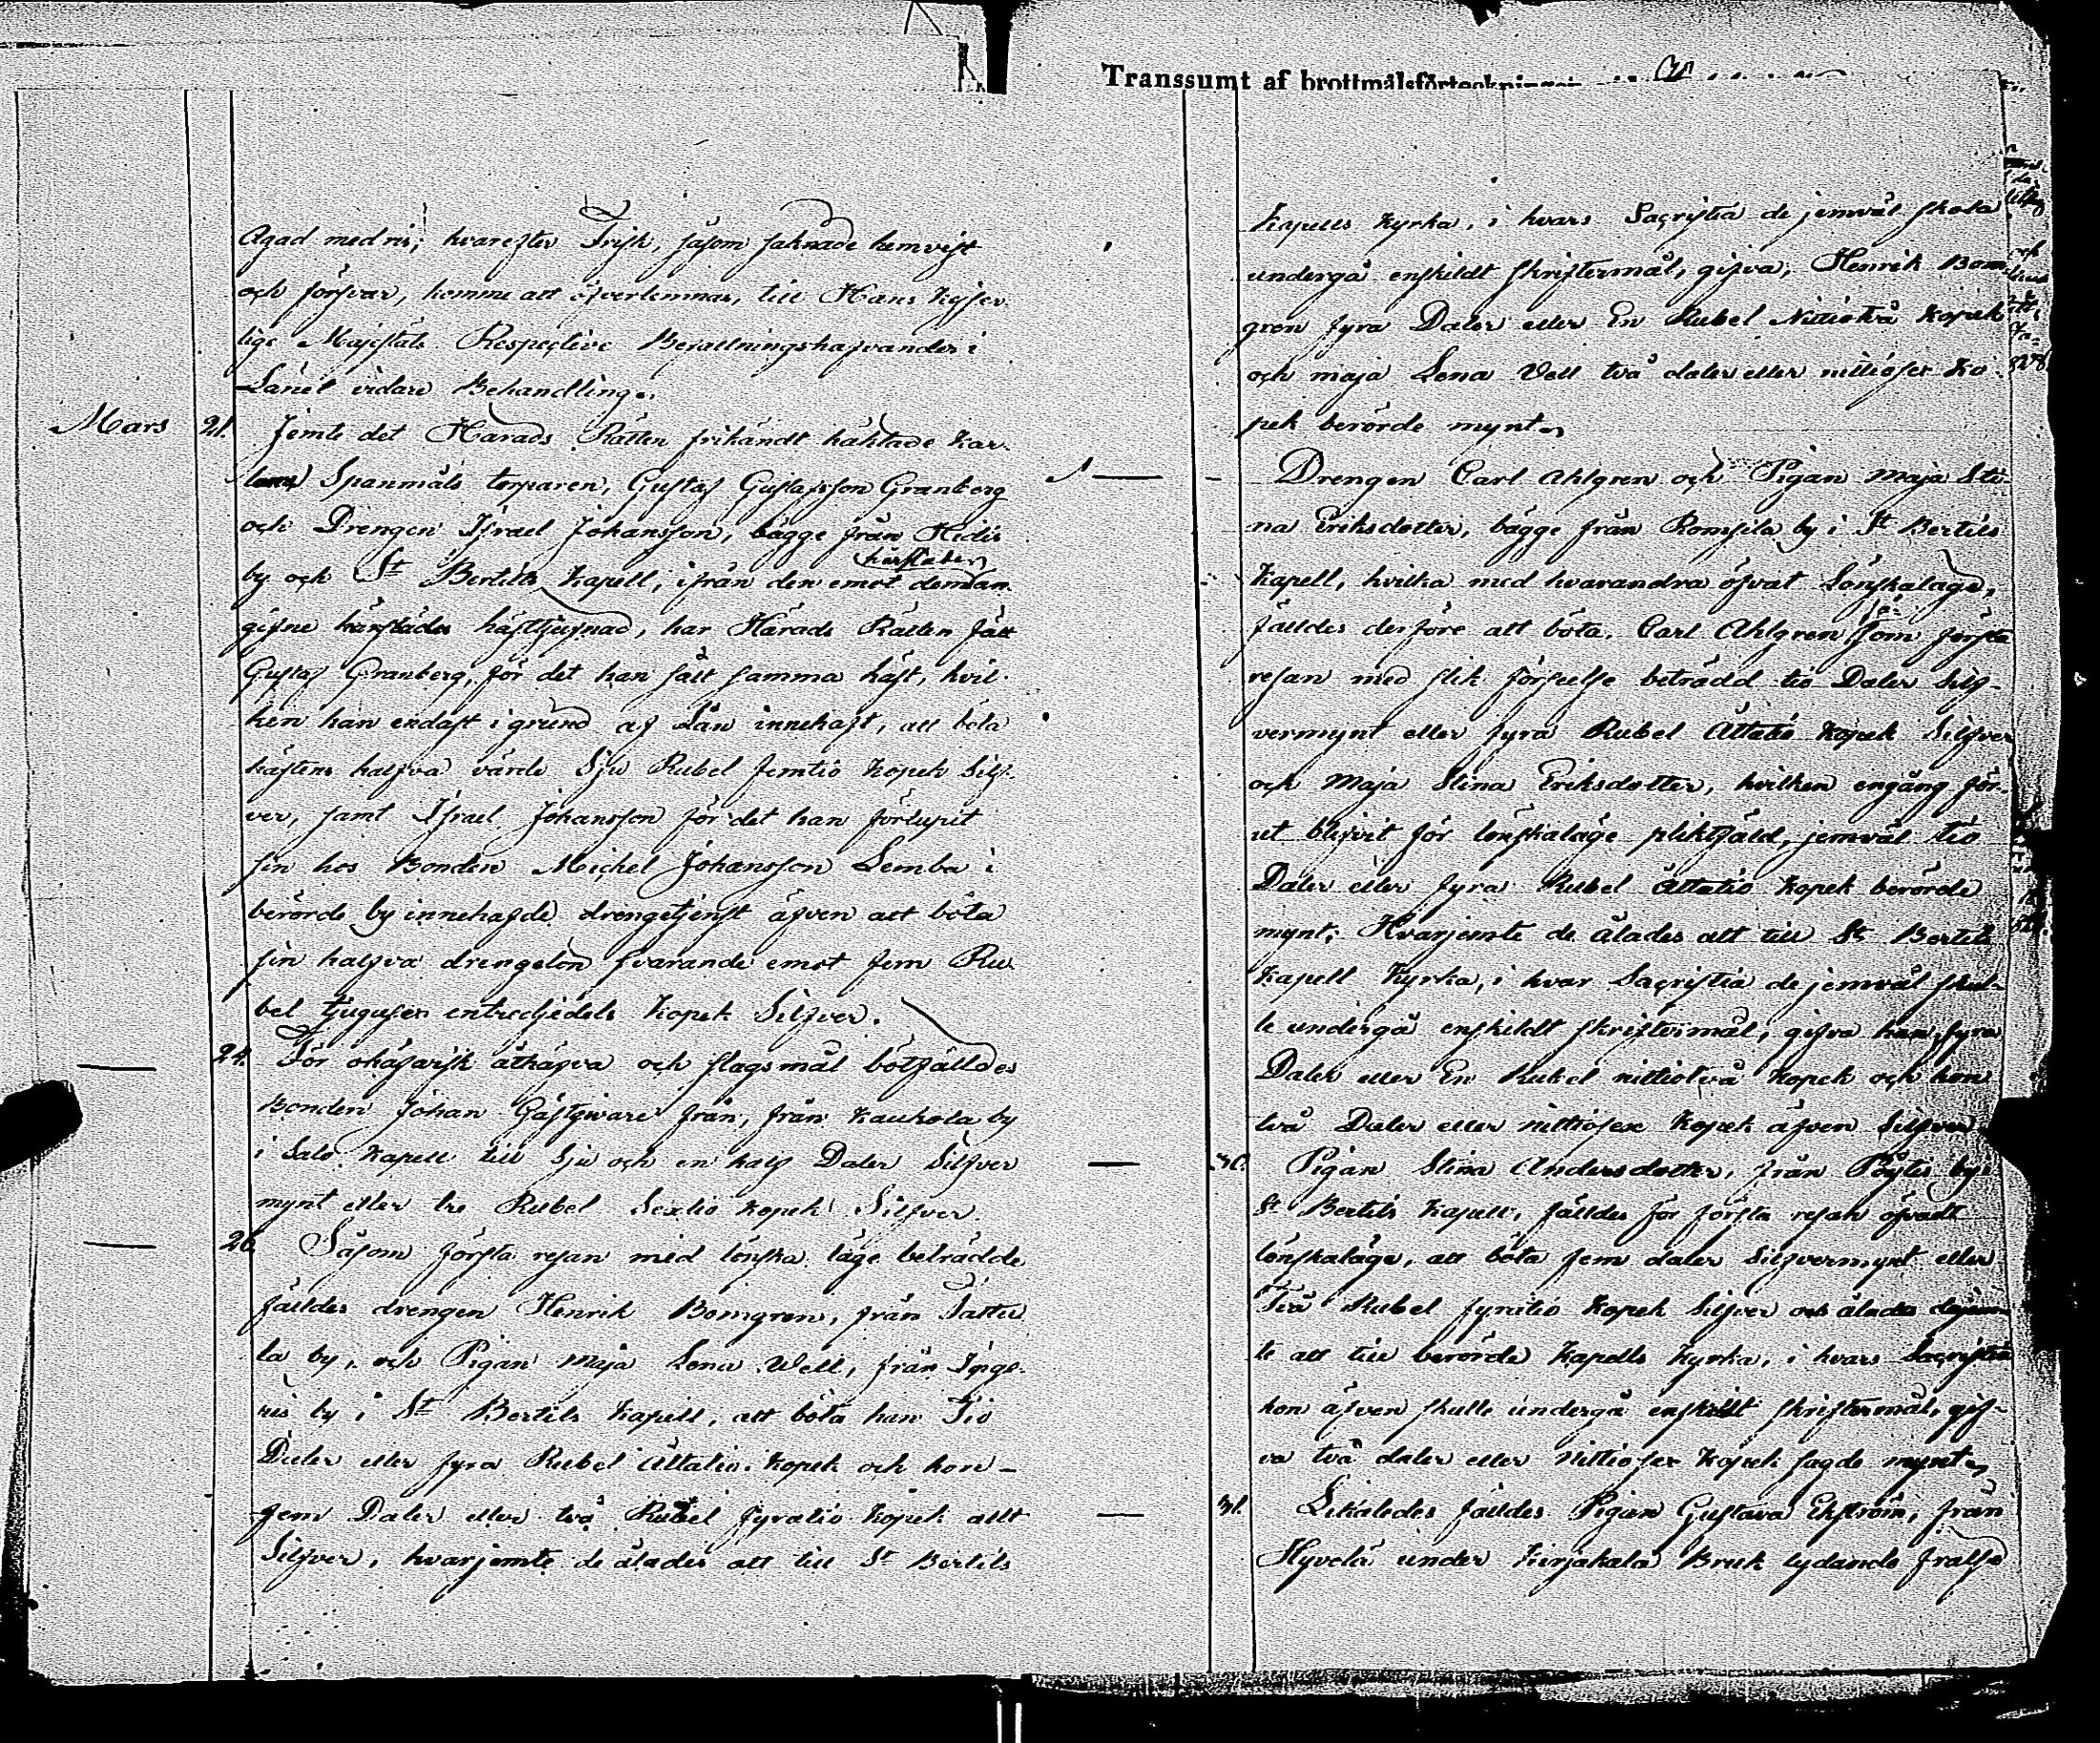 Agad med ris; hvarefter Frisk, såsom saknade hemvist
och försvar, komme att öfverlemnas, till Hans Kejser-
lige Majestäts Respective Befallningshafvander i
Länet vidare Behandling.
Mars 21. Jemte det Härads Rätten frikändt häktade Kar-
larne Spanmåls torparen, Gustaf Gustafsson Granberg
och Drengen Israel Johansson, bägge från Hidis
by och St Bertils Kapell, ifrån den emot dem an-
gifne häststölden hästtjufnad, har Härads Rätten fält
Gustaf Granberg, för det han sålt samma häst, hvil-
ken han endast i grund af Lån innehaft, att böta
hästens halfva värde Sju Rubel femtio Kopek Silf-
ver, samt Israel Johansson för det han förlupit
sin hos Bonden Michel Johansson Lemba i
berörde by innehafde drengetjenst äfven att böta
sin halfva drengelön svarande emot fem Ru-
bel tjugusex entredjedels Kopek Silfver.
— 24. För okäfarisk åthäfva och slagsmål bötfälldes
Bonden Johan Gästgivare från, från Kaukola by
i Salo Kapell till Sju och en half Daler Silfver
mynt eller tre Rubel Sextio Kopek Silfver.
— 26. Såsom första resan med lönska läge beträdde
fälldes drengen Henrik Bomgren, från Tattu-
la by, och Pigan Maja Lena Well, från Inge-
ris by i St Bertils Kapell, att böta han Tio
Daler eller fyra Rubel Åttatio Kopek och hon
fem Daler eller två Rubel fyratio Kopek allt
Silfver, hvarjemte de ålades att till St Bertils
Transsumt af brottmålsförteckningen
Kapells Kyrka, i hvars Sacristia de jemväl skola
undergå enskildt skriftermål, gifva, Henrik Bom-
gren fyra Daler eller En Rubel Nittiotvå Kopek
och Maja Lena Vell två daler eller nittiosex Ko-
pek berörde mynt.
— Drengen Carl Ahlgren och Pigan Maja Sti-
na Eriksdotter, bägge från Romsila by i St Bertils
Kapell, hvilka med hvarandra öfvat Lönskaläge,
fälldes derföre att böta, Carl Ahlgren såsom första
resan med slik förseelse beträdd tio Daler Silf-
vermynt eller fyra Rubel Åttatio Kopek Silfver
och Maja Stina Eriksdotter, hvilken engång för-
ut blifvit för lönskaläge pliktfäld, jemväl tio
Daler eller fyra Rubel åttatio Kopek berörde
mynt; Hvarjemte de ålades att till St Bertils
Kapell Kyrka, i hvar Sacristia de jemväl skul-
le undergå enskildt skriftermål, gifva han fyra
Daler eller En Rubel nittiotvå Kopek och hon
två Daler eller nittiosex Kopek äfven Silfver.
— 30. Pigan Stina Andersdotter, från Pöytis by i
St Bertils Kapell, fälldes för första resan öfvadt
lönskaläge, att böta fem daler Silfvermynt eller
Två Rubel fyratio Kopek Silfver och ålades dejem-
te att till berörde Kapells Kyrka, i hvars Sacristia
hon äfven skulle undergå enskildt skriftermål, gif-
va två daler eller Nittiosex Kopek sagde mynt.
— 31. Likaledes fälldes Pigan Gustava Ekström, från
Hyvelä under Kirjakala Bruk lydande frälse